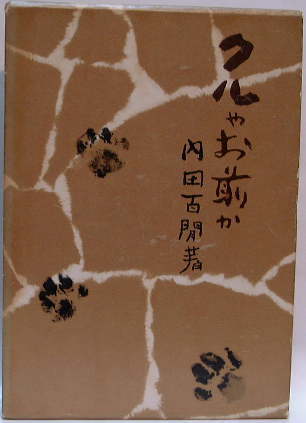 クルやお前か
内田百閒著